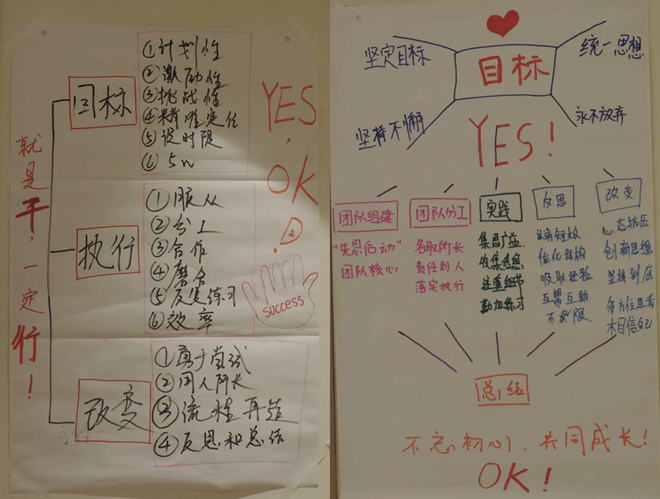 就是干,一定行!
目标
①计划性
②激励性
③挑战性
④精准定位
⑤设时限
⑥5W
YES,
OK
执行
①服从
②分工
③合作
④磨合
⑤反复练习
⑥效率
success
改变
①勇于尝试
②用人所长
③流程再造
④反思和总结
坚定目标
统一思想
目标
坚持不懈
永不放弃
YES!
团队组建
"先思后动"
团队核心
团队分工
各取所长
责任到人
落实执行
实践
集思广益
注重细节
勤加练习
反思
优化结构
吸取经验
互帮互助
不设限
改变
心态转变
创新思想
坚持到底
相信自己
总结
不忘初心,共同成长!
OK!